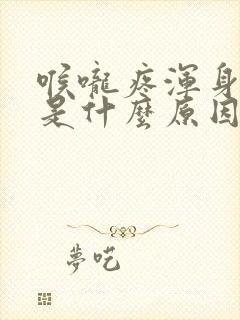 喉嚨疼渾身
是什麼原因
夢吃